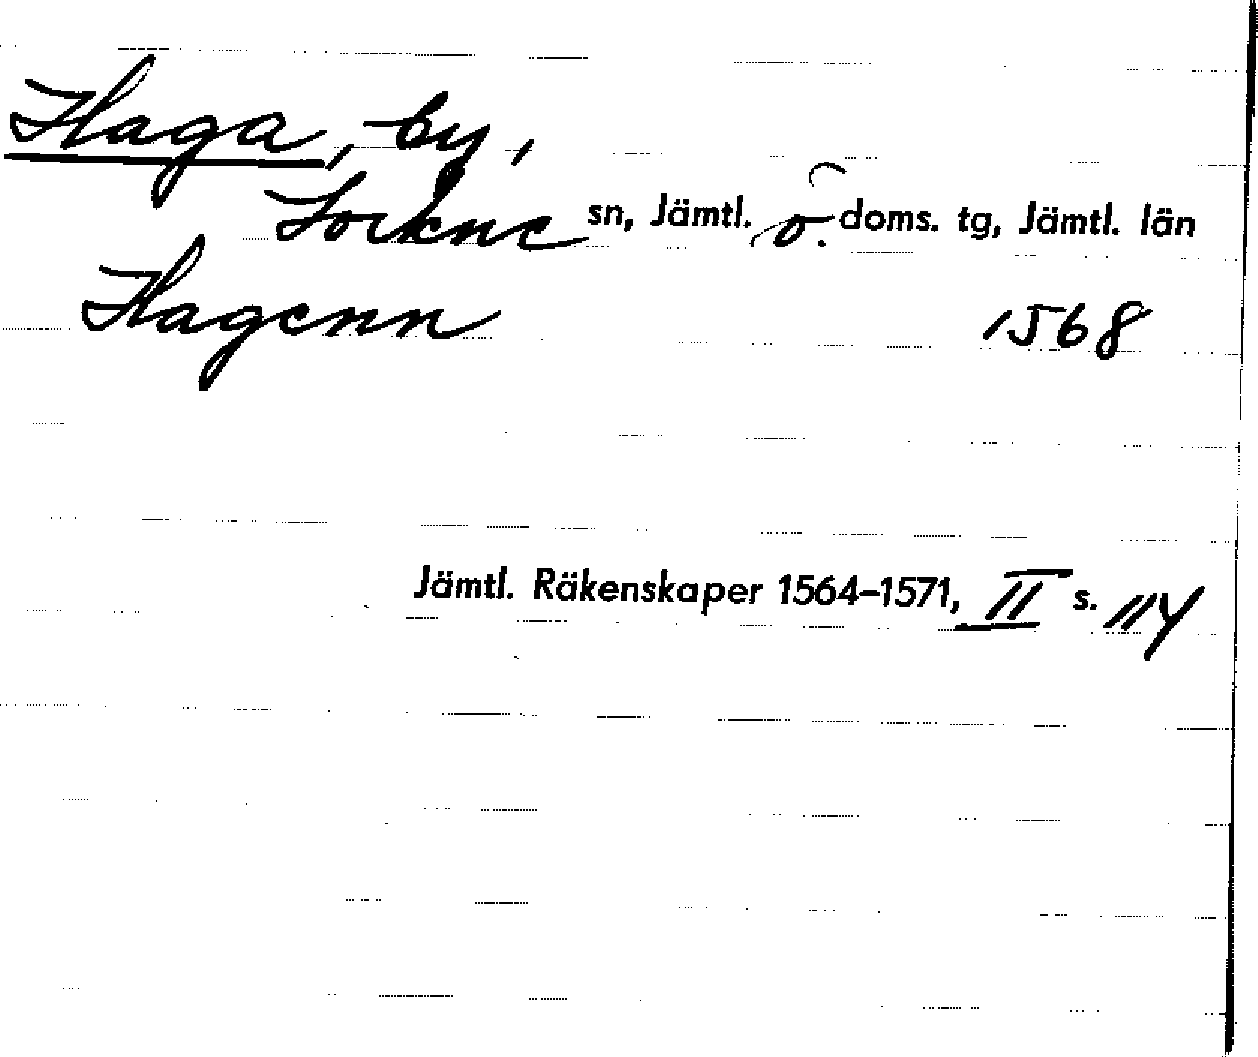 Haga, by,
Lockne sn, Jämtl. ö. doms. tg, Jämtl. län
Hagenn 1568
Jämtl. Räkenskaper 1564–1571, II s. 114